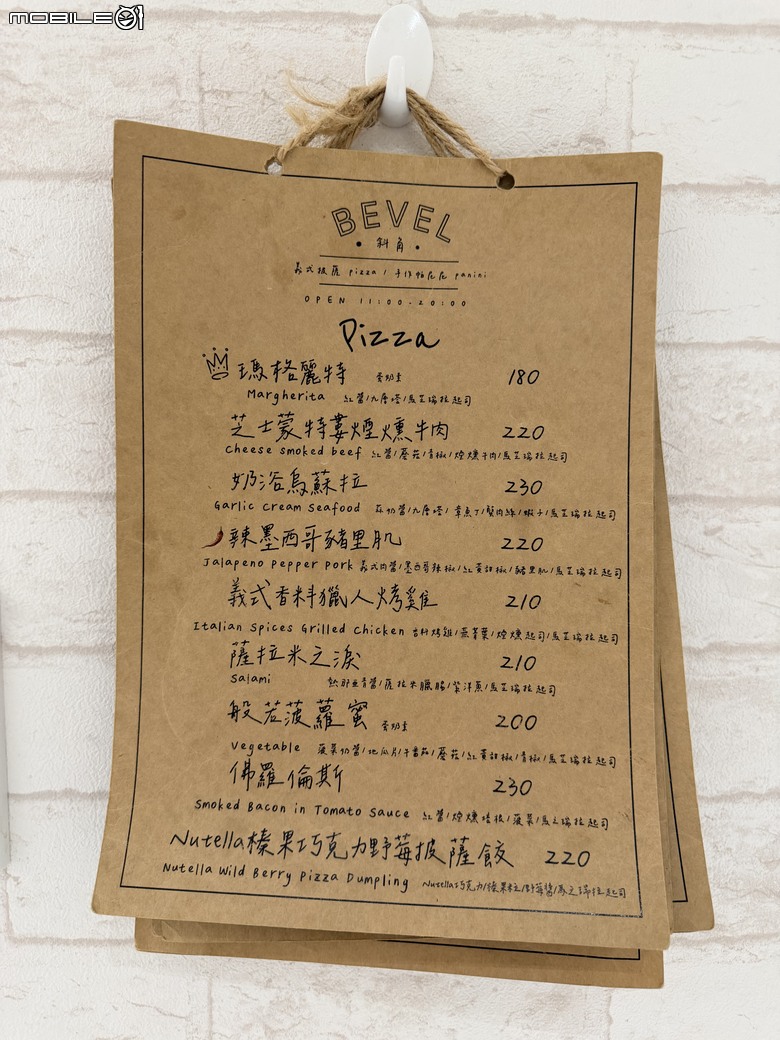 MOBILE01
BEVEL
• 斜角 •
義式披薩 pizza / 手作帕尼尼 panini
OPEN 11:00-20:00
Pizza
瑪格麗特 蛋奶素 180
Margherita 紅醬/九層塔/馬芝瑞拉起司
芝士蒙特婁煙燻牛肉 220
Cheese smoked beef 紅醬/蘑菇/青椒/煙燻牛肉/馬芝瑞拉起司
奶浴烏蘇拉 230
Garlic Cream Seafood 蒜奶醬/九層塔/章魚丁/蟹肉絲/蝦子/馬芝瑞拉起司
辣墨西哥豬里肌 220
Jalapeno Pepper Pork 義式肉醬/墨西哥辣椒/紅黃甜椒/豬里肌/馬芝瑞拉起司
義式香料獵人烤雞 210
Italian Spices Grilled Chicken 香料烤雞/蘿蔓葉/煙燻起司/馬芝瑞拉起司
薩拉米之淚 210
Salami 熱那亞青醬/薩拉米臘腸/紫洋蔥/馬芝瑞拉起司
般若菠蘿蜜 蛋奶素 200
Vegetable 菠菜奶醬/地瓜片/牛番茄/蘑菇/紅黃甜椒/青椒/馬芝瑞拉起司
佛羅倫斯 230
Smoked Bacon in Tomato Sauce 紅醬/煙燻培根/菠菜/馬芝瑞拉起司
Nutella榛果巧克力野莓披薩餃 220
Nutella Wild Berry Pizza Dumpling Nutella巧克力/榛果粒/野莓醬/馬芝瑞拉起司